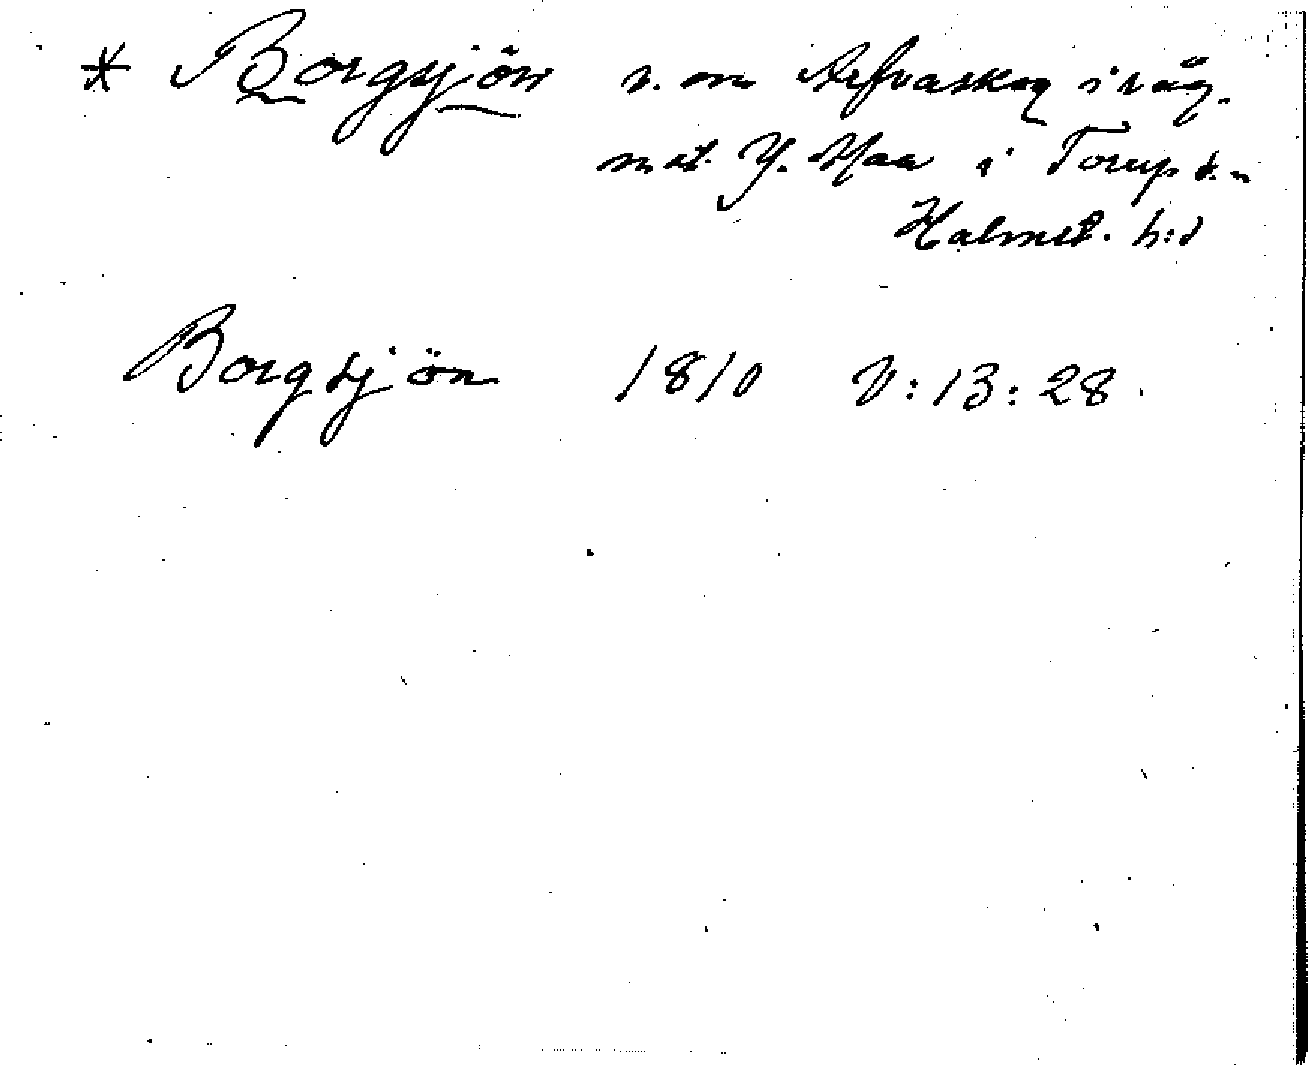 * Borgsjön n. om Refvaskog i väg.
mot Y. i Torup s:n
Halmst. h:d
Borgsjön 1810 V:13:28.